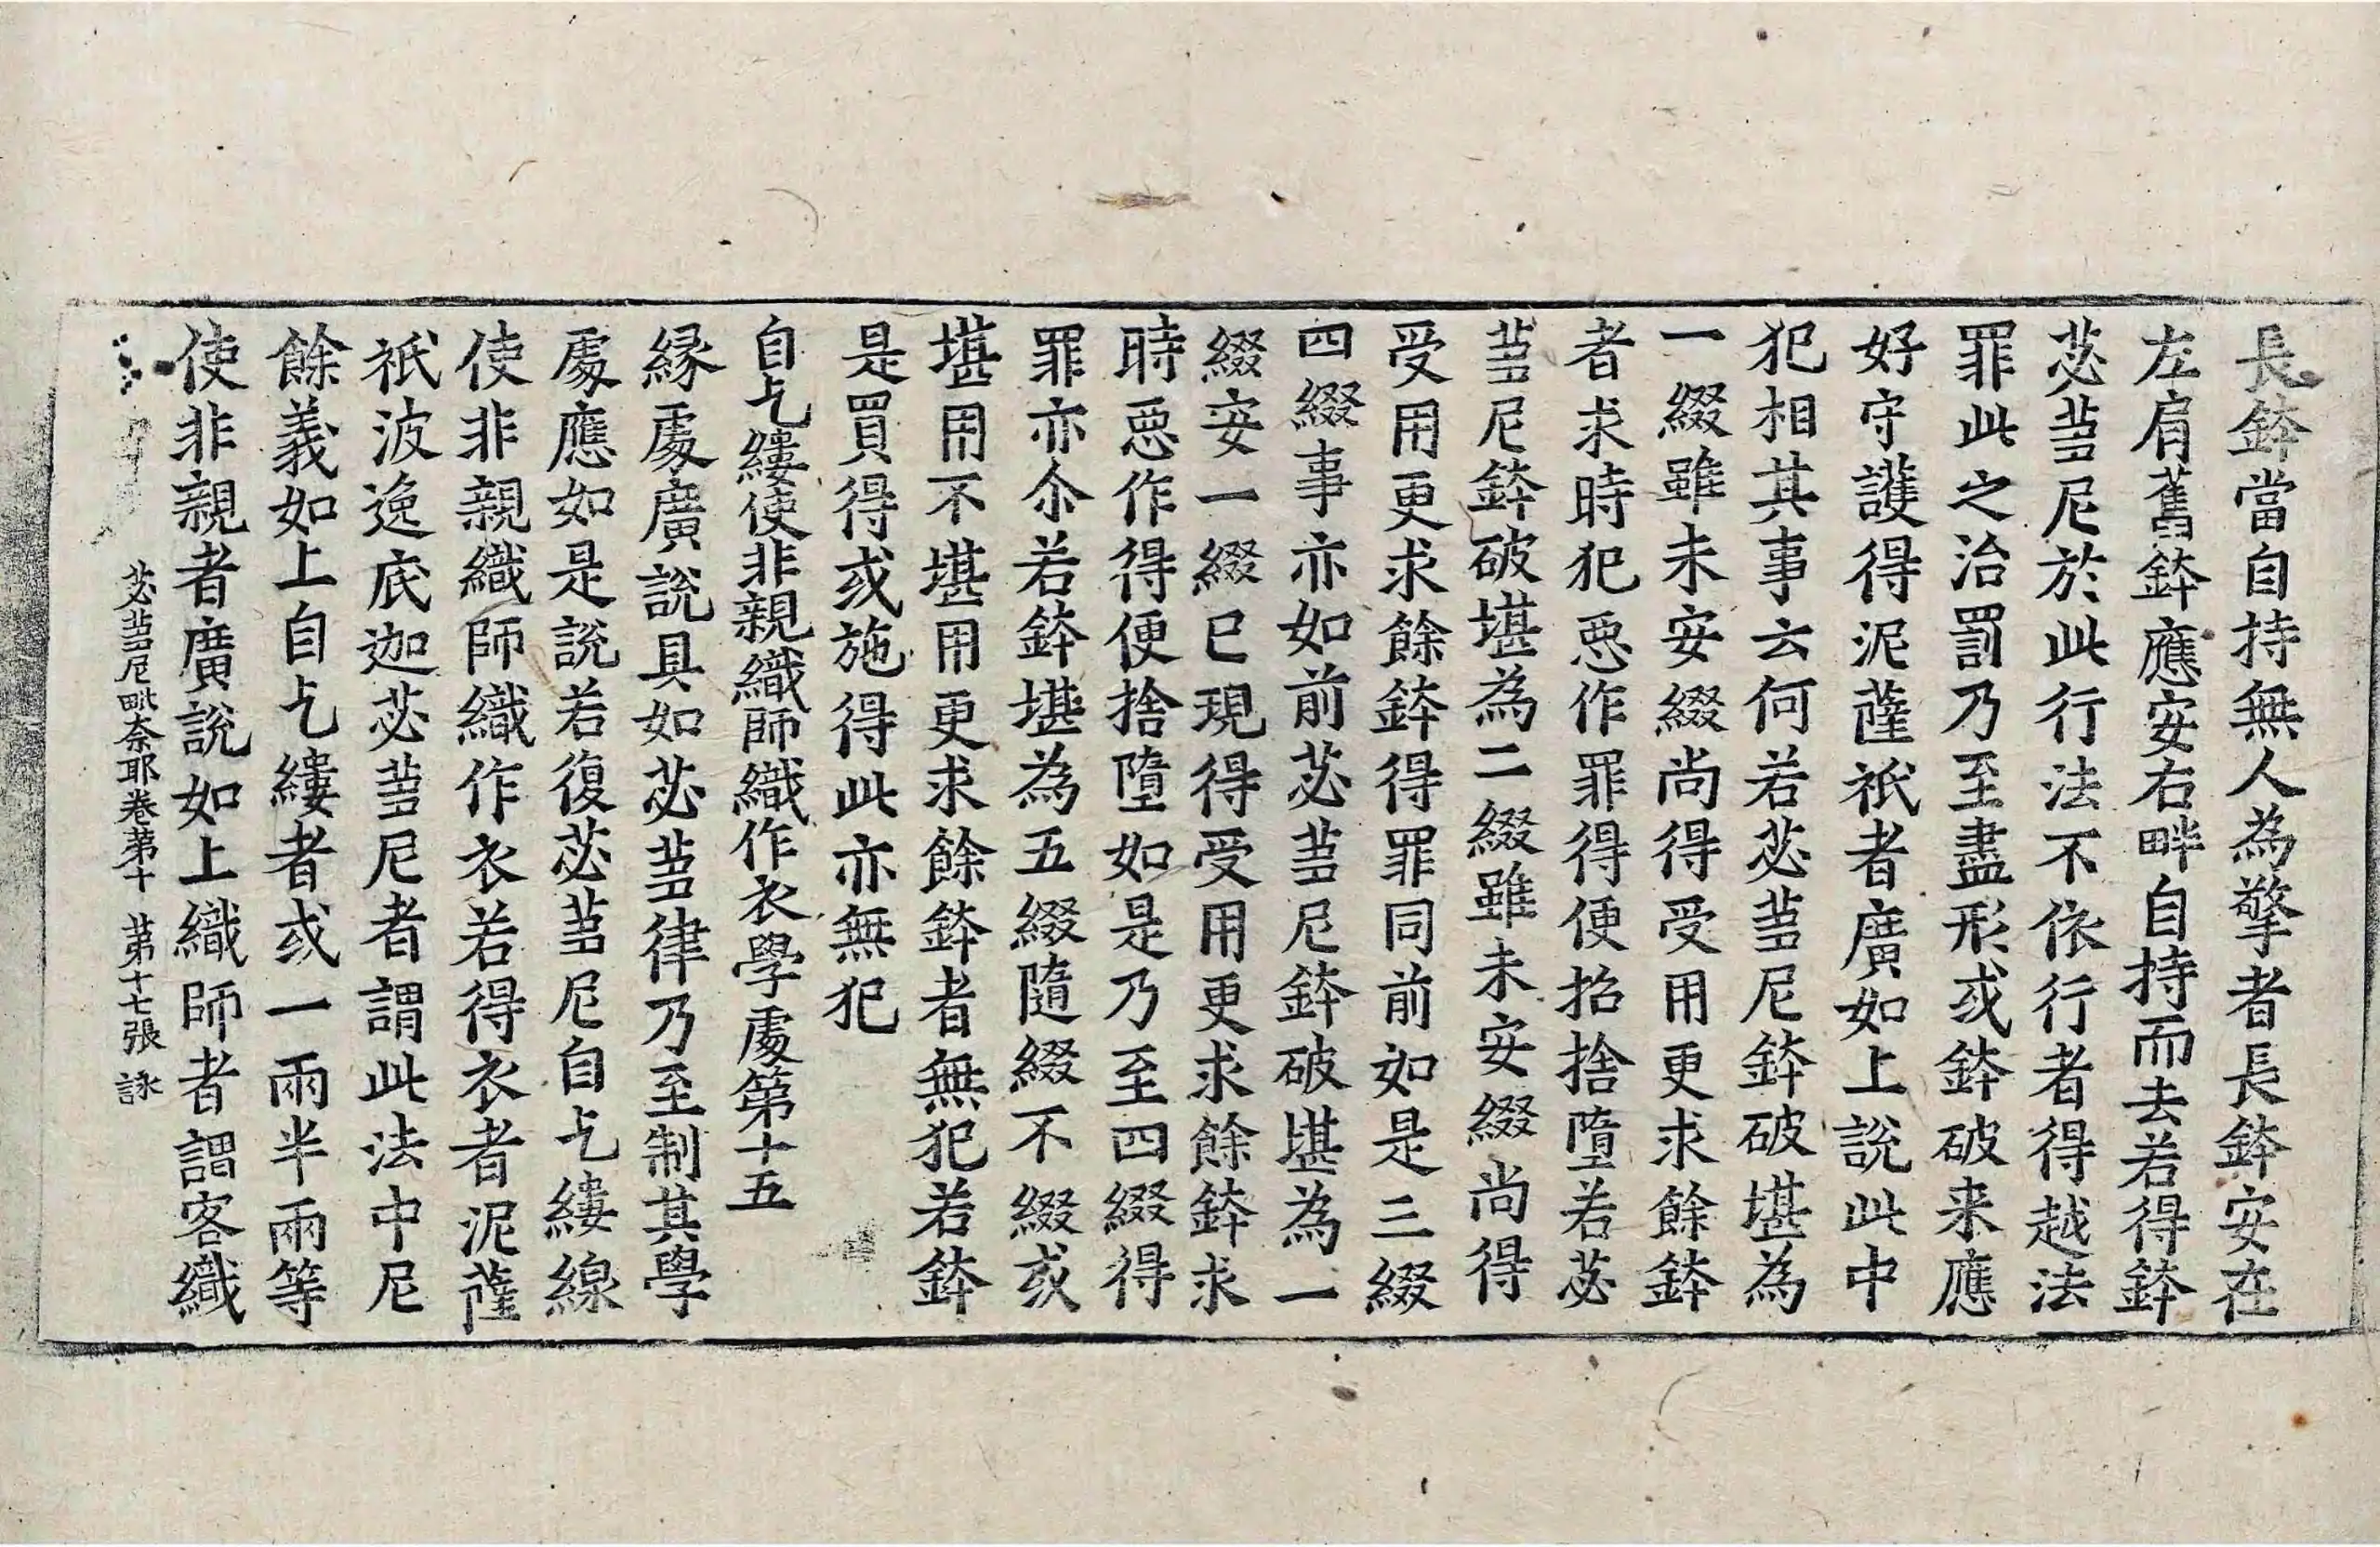 長鉢當自持無人為擎者長鉢安在
左肩舊鉢應安右畔自持而去若得鉢
苾蒭尼於此行法不依行者得越法
罪此之治罰乃至盡形或鉢破来應
好守護得泥薩祇者廣如上說此中
犯相其事云何若苾蒭尼鉢破堪為
一綴雖未安綴尚得受用更求餘鉢
者求時犯惡作罪得便招捨墮若苾
蒭尼鉢破堪為二綴雖未安綴尚得
受用更求餘鉢得罪同前如是三綴
四綴事亦如前苾蒭尼鉢破堪為一
綴安一綴已現得受用更求餘鉢求
時惡作得便捨墮如是乃至四綴得
罪亦尒若鉢堪為五綴隨綴不綴或
堪用不堪用更求餘鉢者無犯若鉢
是買得或施得此亦無犯
自乞縷使非親織師織作衣學處第十五
緣處廣說具如苾蒭律乃至制其學
處應如是說若復苾蒭尼自乞縷線
使非親織師織作衣若得衣者泥薩
祇波逸底迦苾蒭尼者謂此法中尼
餘義如上自乞縷者或一兩半兩等
使非親者廣說如上織師者謂客織
苾蒭尼毗奈耶卷第十 第十七張 詠